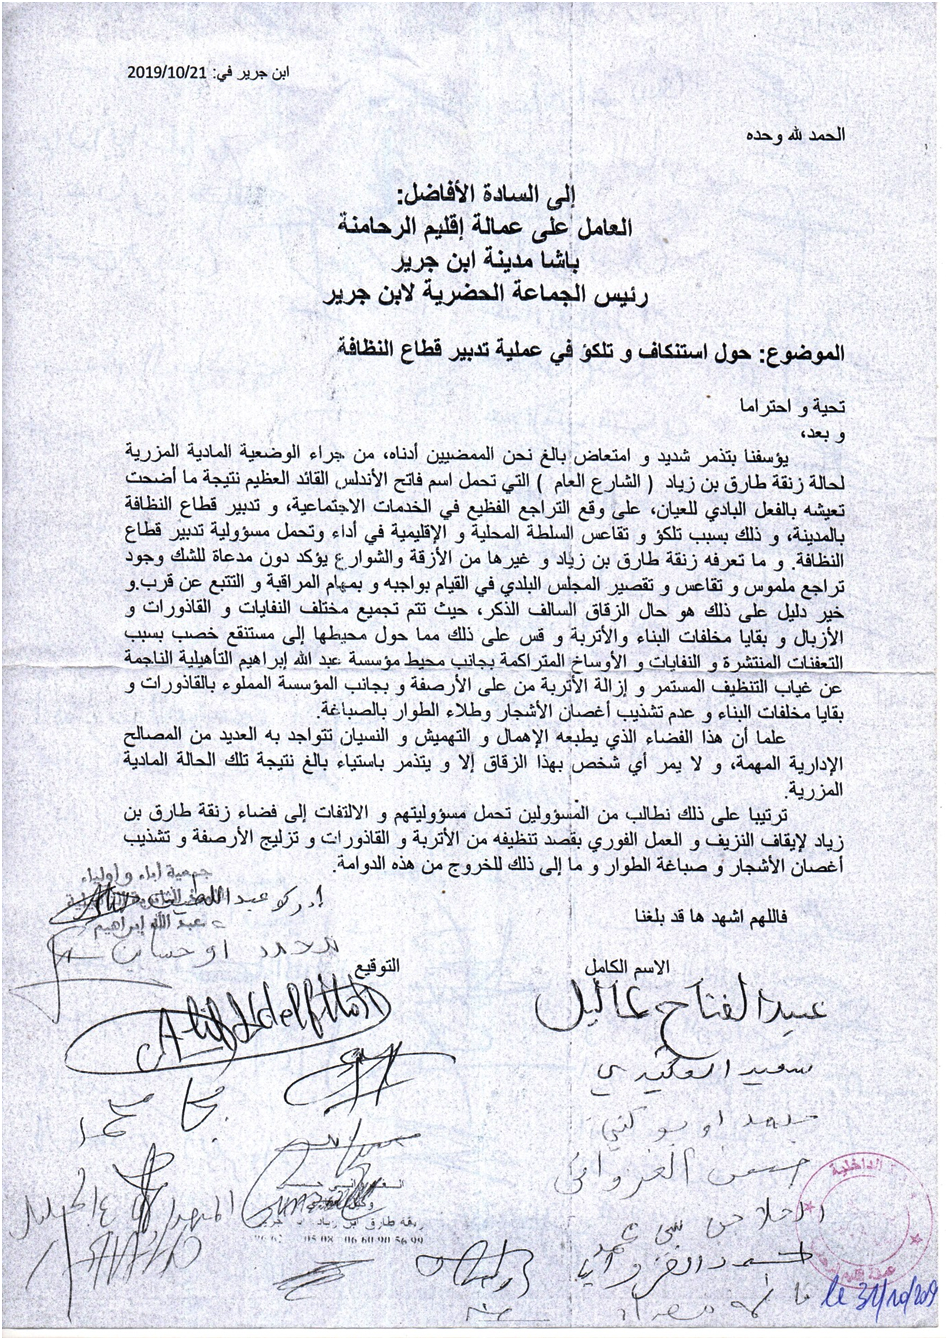 ابن جرير في: 2019/10/21
الحمد لله وحده
إلى السادة الأفاضل:
العامل على عمالة إقليم الرحامنة
باشا مدينة ابن جرير
رئيس الجماعة الحضرية لابن جرير
الموضوع: حول استنكاف و تلكؤ في عملية تدبير قطاع النظافة
تحية و احتراما
و بعد،
يؤسفنا بتذمر شديد و امتعاض بالغ نحن الممضيين أدناه، من جراء الوضعية المادية المزرية
لحالة زنقة طارق بن زياد ( الشارع العام ) التي تحمل اسم فاتح الأندلس القائد العظيم نتيجة ما أضحت
تعيشه بالفعل البادي للعيان، على وقع التراجع الفظيع في الخدمات الاجتماعية، و تدبير قطاع النظافة
بالمدينة، و ذلك بسبب تلكؤ و تقاعس السلطة المحلية و الإقليمية في أداء وتحمل مسؤولية تدبير قطاع
النظافة. و ما تعرفه زنقة طارق بن زياد و غيرها من الأزقة والشوارع يؤكد دون مدعاة للشك وجود
تراجع ملموس و تقاعس و تقصير المجلس البلدي في القيام بواجبه و بمهام المراقبة و التتبع عن قرب.و
خير دليل على ذلك هو حال الزقاق السالف الذكر، حيث تتم تجميع مختلف النفايات و القاذورات و
الأزبال و بقايا مخلفات البناء والأتربة و قس على ذلك مما حول محيطها إلى مستنقع خصب بسبب
التعفنات المنتشرة و النفايات و الأوساخ المتراكمة بجانب محيط مؤسسة عبد الله إبراهيم التأهيلية الناجمة
عن غياب التنظيف المستمر و إزالة الأتربة من على الأرصفة و بجانب المؤسسة المملوء بالقاذورات و
بقايا مخلفات البناء و عدم تشذيب أغصان الأشجار وطلاء الطوار بالصباغة.
علما أن هذا الفضاء الذي يطبعه الإهمال و التهميش و النسيان تتواجد به العديد من المصالح
الإدارية المهمة، و لا يمر أي شخص بهذا الزقاق إلا و يتذمر باستياء بالغ نتيجة تلك الحالة المادية
المزرية.
ترتيبا على ذلك نطالب من المسؤولين تحمل مسؤوليتهم و الالتفات إلى فضاء زنقة طارق بن
زياد لإيقاف النزيف و العمل الفوري بقصد تنظيفه من الأتربة و القاذورات و تزليج الأرصفة و تشذيب
أغصان الأشجار و صباغة الطوار و ما إلى ذلك للخروج من هذه الدوامة.
جمعية آباء و أولياء
عبد الله إبراهيم
فاللهم اشهد ها قد بلغنا
الاسم الكامل
التوقيع
عبد الفتاح عاليل
حسن الغزواني
الداخلية
le 31/10/2019